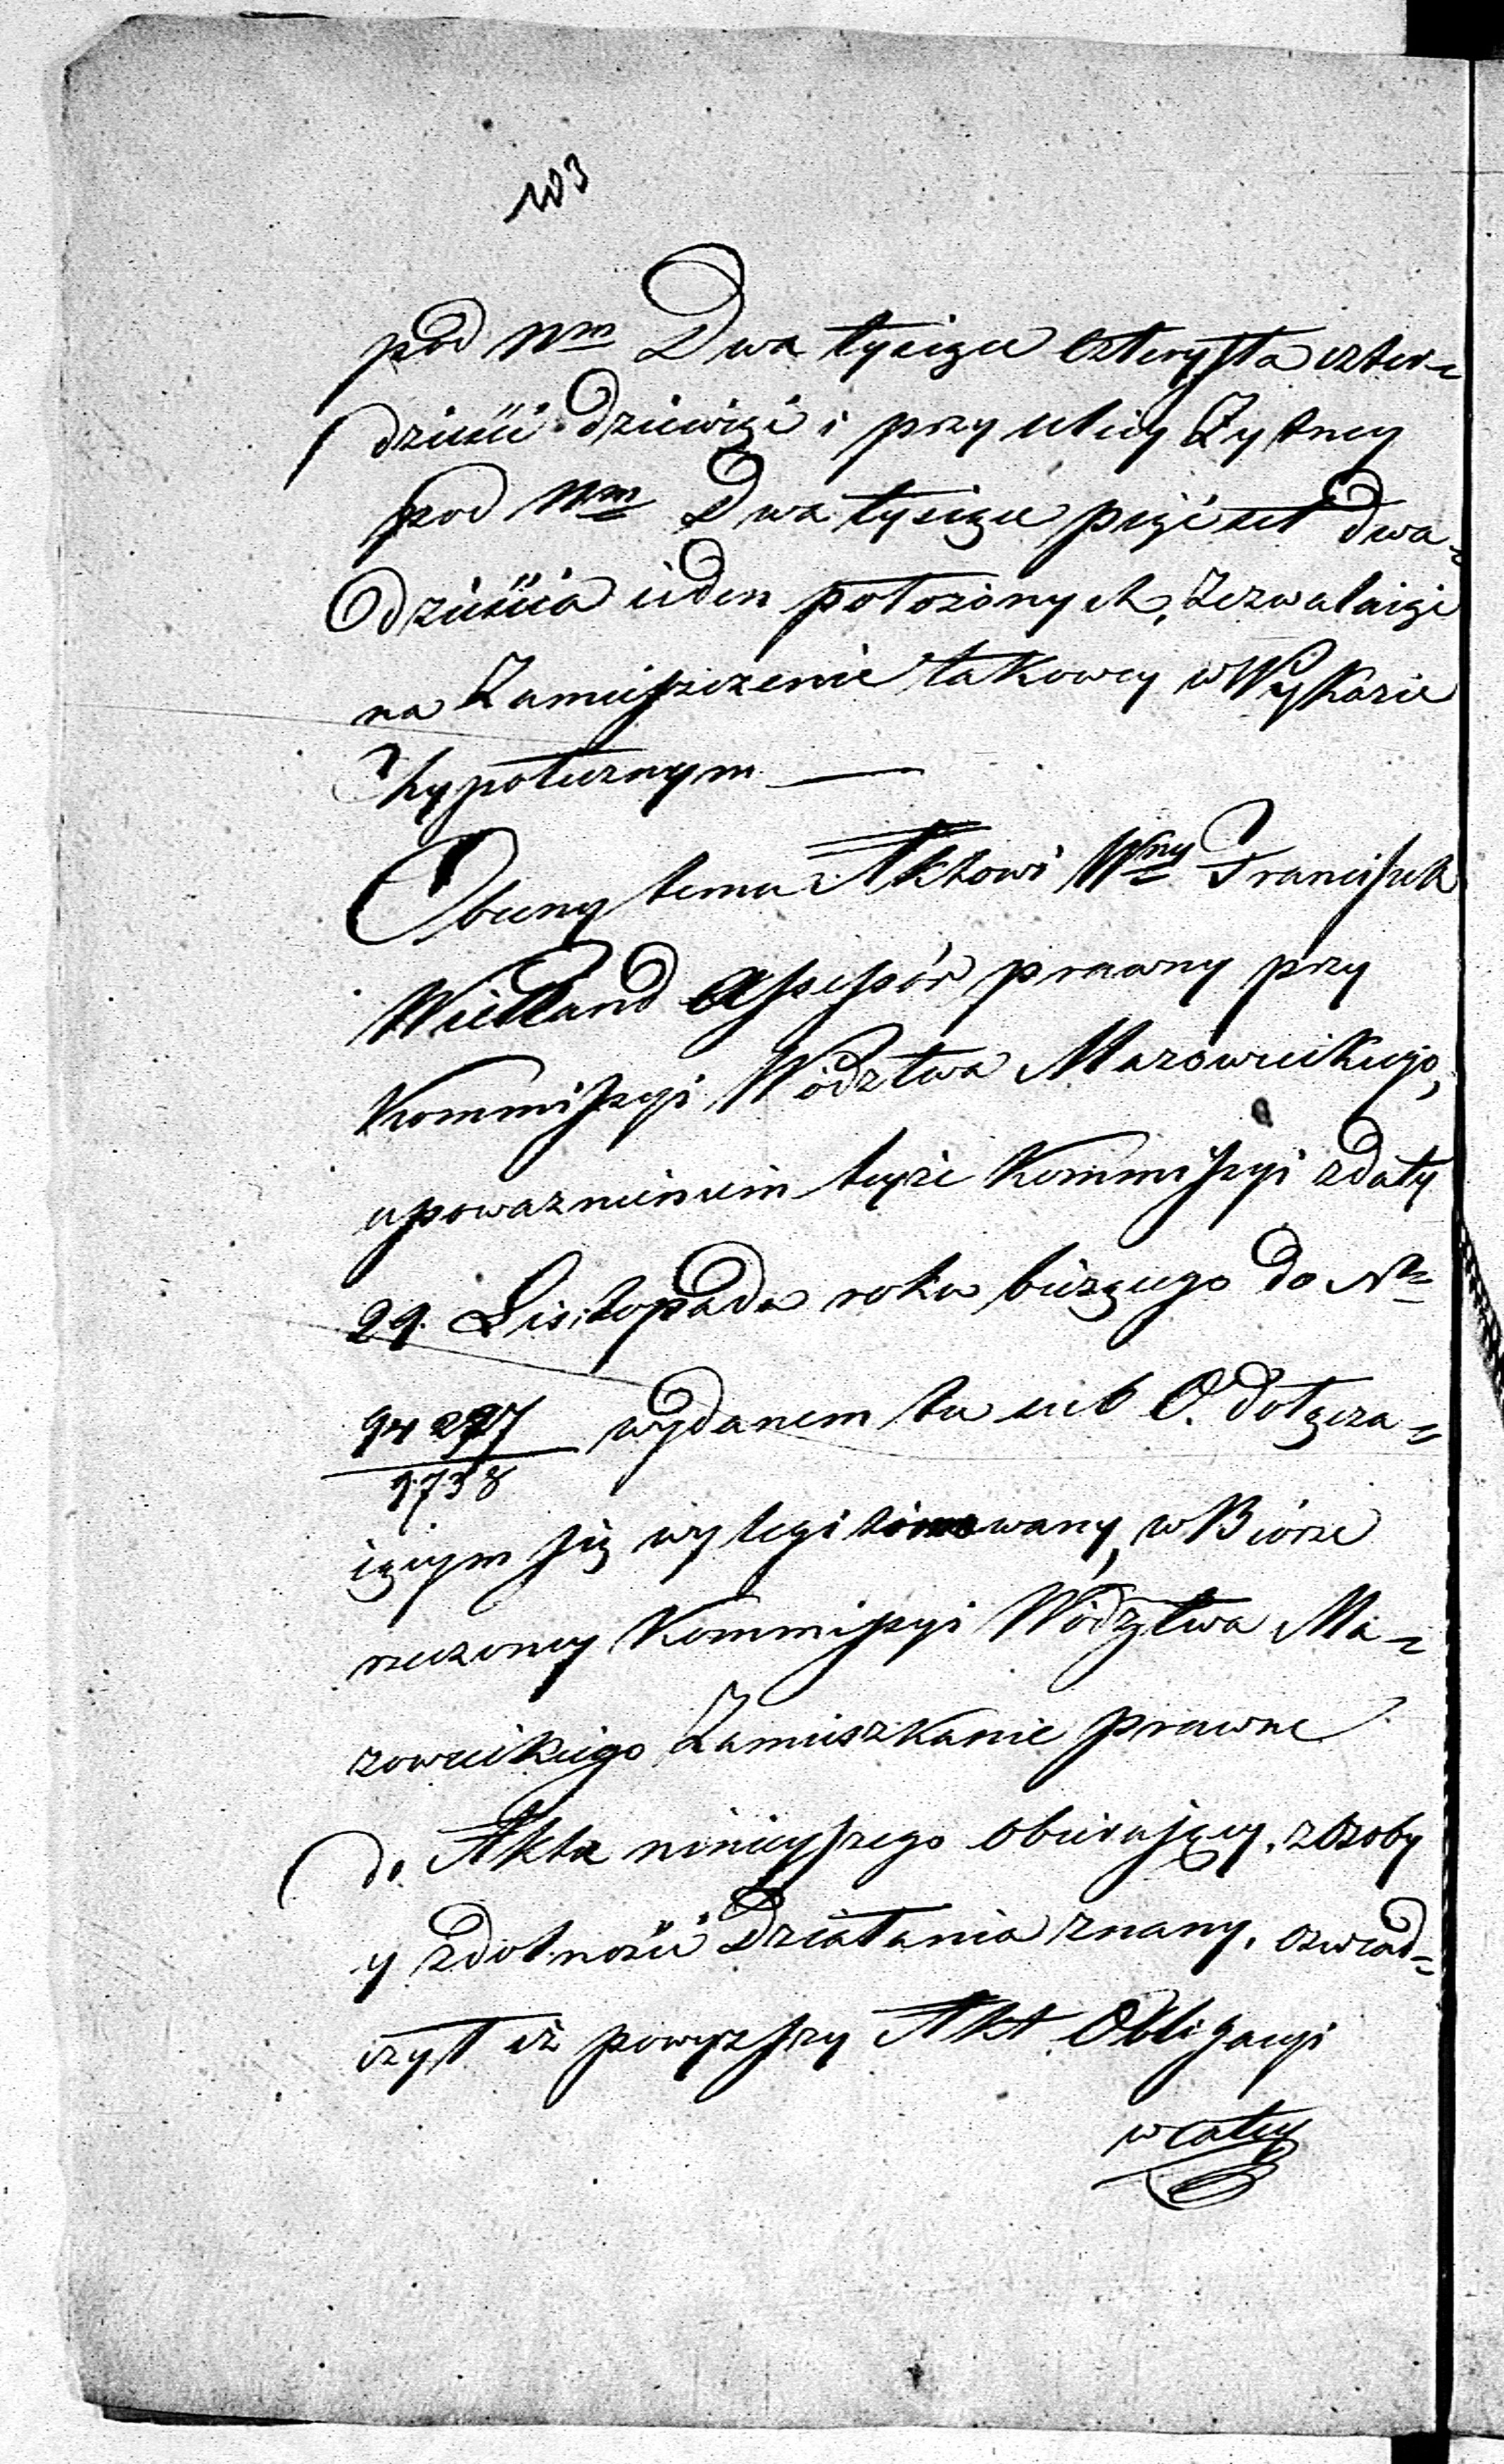 103
pod Nm Dwa tysiące czterysta czter=
dzieści dziewięć i przy ulicy Żytney
pod Nm Dwa tysiące pięćset dwa=
dzieścia ieden położonych, zezwalaiąc
na Zamieszczenie takowey w Wykazie
hypotecznym —
Obecny temu Aktowi Wny Franciszek
Wielland Assessor prawny przy
Kommissyi Wodztwa Mazowieckiego,
upoważnieniem teyże Kommissyi z daty
29. Listopada roku bieżącego do Nr
94297
1738
wydanem tu sub O. dołącza=
iącym się wylegitimowany, w Biórze
rzeczoney Kommissyi Wodztwa Ma=
zowieckiego Zamieszkanie prawne
do Aktu ninieyszego obieraiący, z Osoby
y zdolności Działania znany, oświad=
czył iż powyższy Akt Obligacyi
w całey